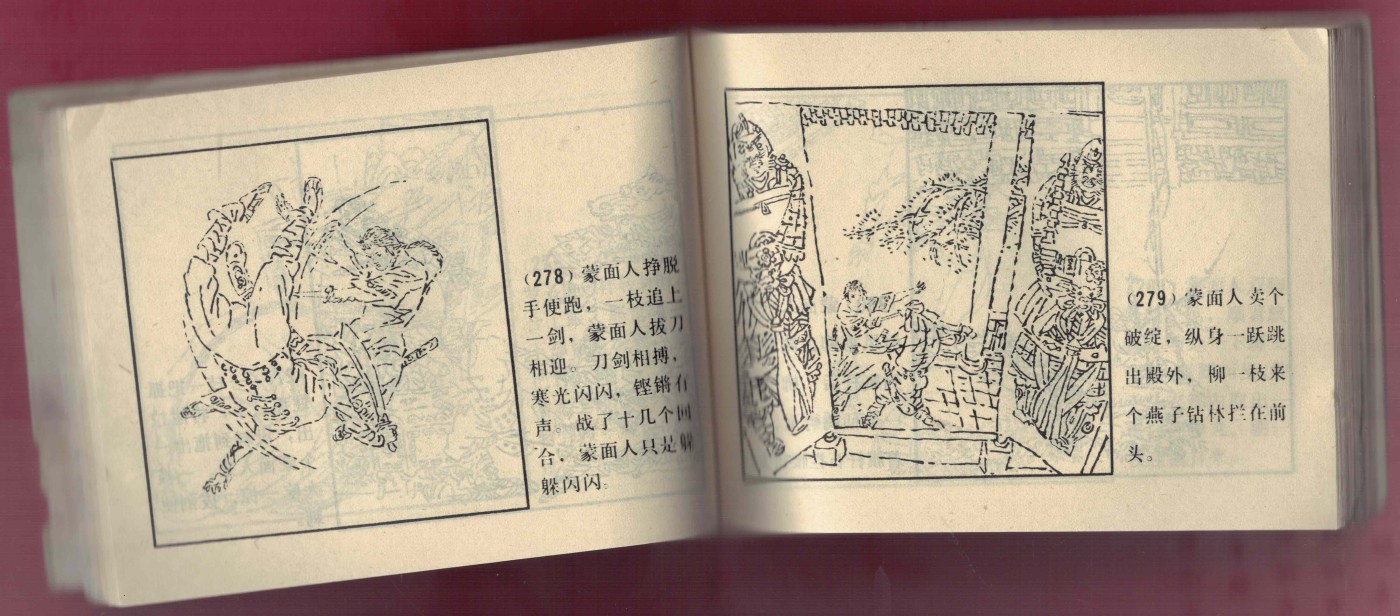 (278)蒙面人挣脱
手便跑，一枝追上
一剑，蒙面人拔刀
相迎。刀剑相搏，
寒光闪闪，铿锵有
声。战了十几个回
合，蒙面人只是躲
躲闪闪。
(279)蒙面人卖个
破绽，纵身一跃跳
出殿外，柳一枝来
个燕子钻林拦在前
头。